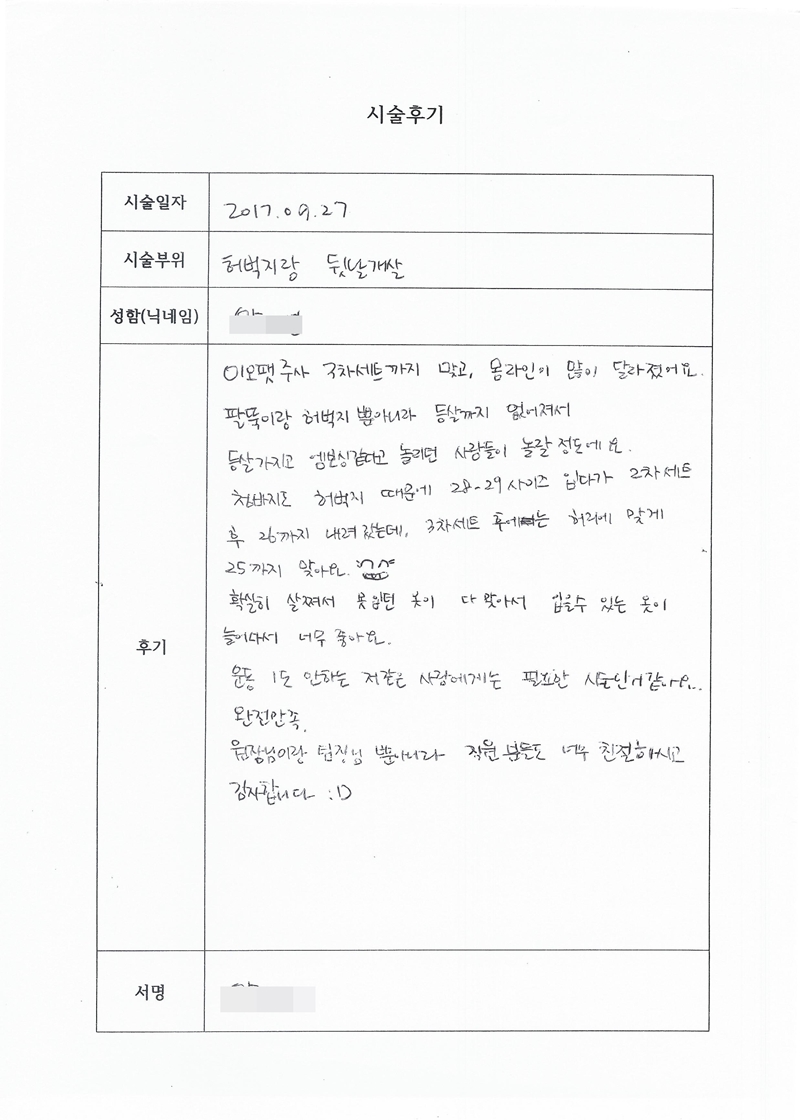 시술후기
시술일자 2017.09.27
시술부위 허벅지랑 뒷날개살
성함(닉네임)
이오팻주사 3차세트까지 맞고, 몸라인이 많이 달라졌어요.
팔뚝이랑 허벅지뿐아니라 등살까지 없어져서
등살가지고 엠보싱같다고 놀리던 사람들이 놀랄 정도에요.
청바지도 허벅지 때문에 28-29사이즈 입다가 2차세트
후 26까지 내려갔는데, 3차세트 후에는 허리에 맞게
25까지 맞아요.
확실히 살쪄서 못입던 옷이 다 맞아서 입을수 있는 옷이
늘어나서 너무 좋아요.
후기
운동 1도 안하는 저같은 사람에게는 필요한 시술인거같아요..
완전만족.
원장님이랑 팀장님 뿐아니라 직원분들도 너무 친절해시고
감사합니다 :D
서명